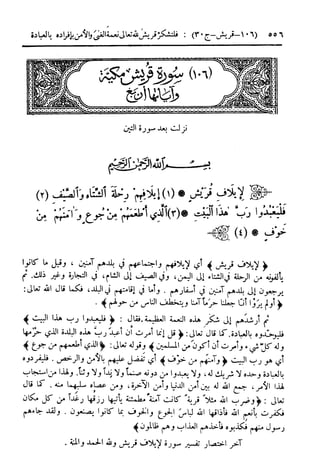 ٥٥٦ (١٠٦-قريش-ج٣٠) : فلتشكر قريش لله تعالى نعمة الغنى والأمن بإفراده بالعبادة
(١٠٦) سورة قريش مكية
وآياتها أربع
نزلت بعد سورة التين
بسم الله الرحمن الرحيم
لإيلاف قريش * (١) إيلافهم رحلة الشتاء والصيف (٢)
فليعبدوا رب هذا البيت * (٣) الذي أطعمهم من جوع وءامنهم من
خوف * (٤)
﴿ لإيلاف قريش ﴾ أي لإيلافهم واجتماعهم في بلدهم آمنين ، وقيل ما كانوا
يألفونه من الرحلة في الشتاء إلى اليمن، وفي الصيف إلى الشام، في التجارة وغير ذلك. ثم
يرجعون إلى بلدهم آمنين في أسفارهم . وأما في إقامتهم في البلد، فكما قال الله تعالى:
﴿ أولم يروا أنا جعلنا حرما آمنا ويتخطف الناس من حولهم ﴾ .
ثم أرشدهم إلى شكر هذه النعمة العظيمة. فقال : ﴿ فليعبدوا رب هذا البيت ﴾
فليوحدوه بالعبادة. كما قال تعالى: ﴿قل إنما أمرت أن أعبد رب هذه البلدة الذي حرمها
وله كل شيء ، وأمرت أن أكون من المسلمين﴾ وقوله تعالى: ﴿الذي أطعمهم من جوع ﴾
أي هو رب البيت ﴿ وآمنهم من خوف﴾ أي تفضل عليهم بالأمن والرخص . فليفردوه
بالعبادة وحده لا شريك له، ولا يعبدوا من دونه صنماً ولا نداً ولا وثناً. ولهذا من استجاب
لهذا الأمر، جمع الله له بين أمن الدنيا وأمن الآخرة، ومن عصاه سلبهما منه . كما قال
تعالى : ﴿ وضرب الله مثلاً قرية كانت آمنة مطمئنة يأتيها رزقها رغداً من كل مكان
فكفرت بأنعم الله فأذاقها الله لباس الجوع والخوف بما كانوا يصنعون . ولقد جاءهم
رسول منهم فكذبوه فأخذهم العذاب وهم ظالمون﴾
آخر اختصار تفسير سورة لإيلاف قريش ولله الحمد والمنة .